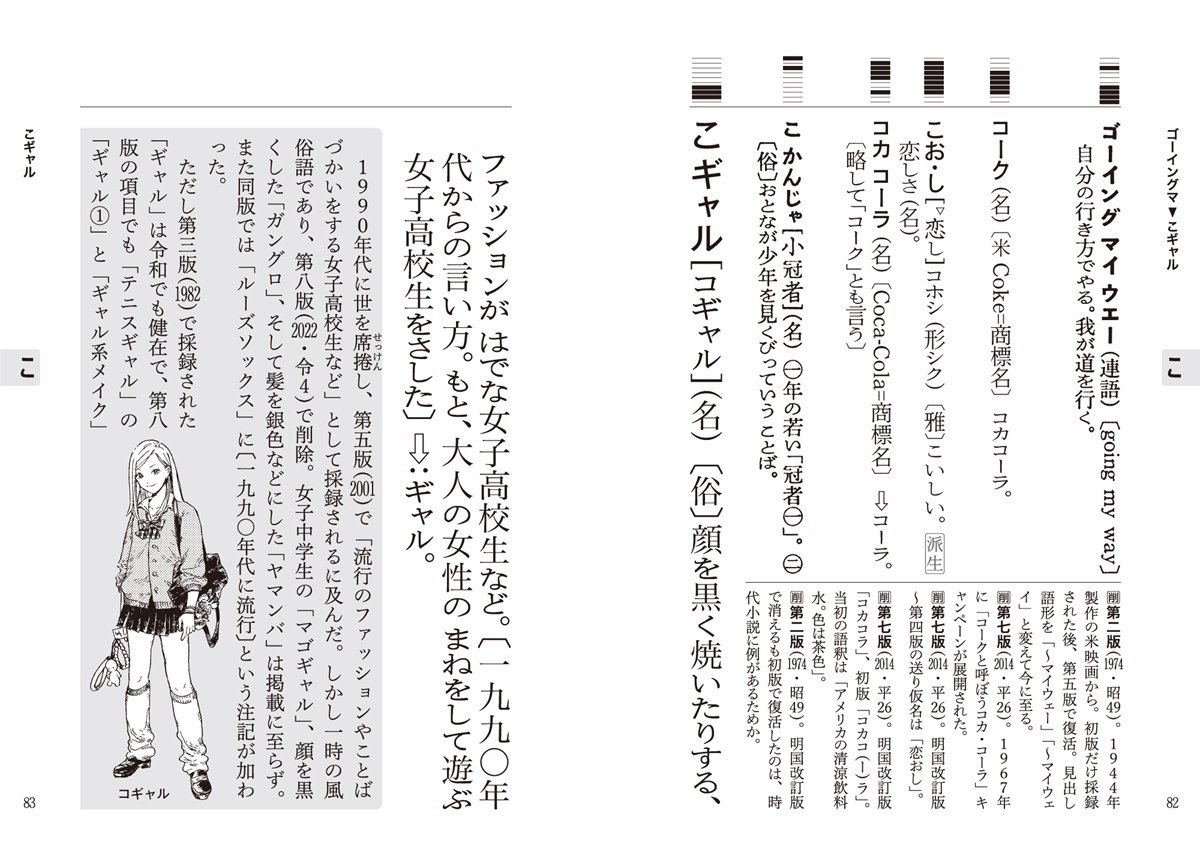 ゴーイングマ▼こギャル
こ
82
ゴーイング マイ ウエー(連語)〔going my way〕
自分の行き方でやる。我が道を行く。
コーク(名)〔米 Coke=商標名〕 コカコーラ。
こお・し[▽恋し]コホシ(形シク)〔雅〕こいしい。 派生
恋しさ(名)。
コカ コーラ(名)〔Coca-Cola=商標名〕 ⇨コーラ。
〔略して「コーク」とも言う〕
こ かんじゃ[小冠者](名) ㊀年の若い「冠者㊀」。 ㊁
〔俗〕おとなが少年を見くびっていう ことば。
こ ギャル[コギャル](名)〔俗〕顔を黒く焼いたりする、
削 第二版(1974・昭49)。1944年
製作の米映画から。初版だけ採録
された後、第五版で復活。見出し
語形を「〜マイウェー」「〜マイウェ
イ」と変えて今に至る。
削 第七版(2014・平26)。1967年
に「コークと呼ぼうコカ・コーラ」キ
ャンペーンが展開された。
削 第七版(2014・平26)。明国改訂版
〜第四版の送り仮名は「恋おし」。
削 第七版(2014・平26)。明国改訂版
「コカコラ」、初版「コカコ(ー)ラ」。
当初の語釈は「アメリカの清涼飲料
水。色は茶色」。
削 第二版(1974・昭49)。明国改訂版
で消えるも初版で復活したのは、時
代小説に例があるためか。
ファッションが はでな女子高校生など。〔一九九〇年
代からの言い方。もと、大人の女性の まねをして遊ぶ
女子高校生をさした〕⇨:ギャル。
1990年代に世を席捲し、第五版(2001)で「流行のファッションやことば
せっけん
づかいをする女子高校生など」として採録されるに及んだ。しかし一時の風
俗語であり、第八版(2022・令4)で削除。女子中学生の「マゴギャル」、顔を黒
くした「ガングロ」、そして髪を銀色などにした「ヤマンバ」は掲載に至らず。
また同版では「ルーズソックス」に〔一九九〇年代に流行〕という注記が加わ
った。
ただし第三版(1982)で採録された
「ギャル」は令和でも健在で、第八
版の項目でも「テニスギャル」の
「ギャル①」と「ギャル系メイク」
コギャル
こギャル
こ
83